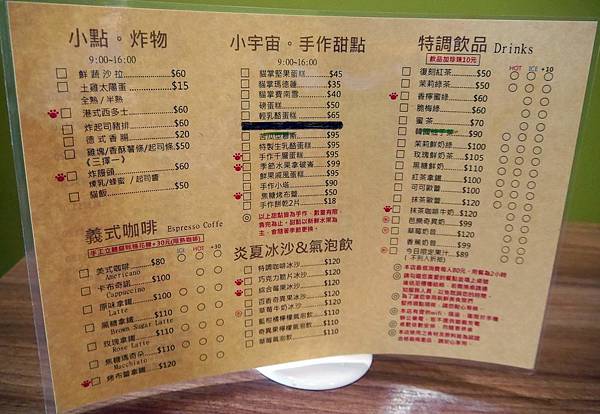 小點。炸物
9:00~16:00
鮮蔬沙拉 $60
土雞太陽蛋 $15
全熟 / 半熟
港式西多士 $60
炸起司豬排 $60
德式香腸 $20
雞塊/香酥薯條/起司條 $50
(三擇一)
炸饅頭 $60
煉乳/蜂蜜 /起司醬
貓飯 $50
義式咖啡 Espresso Coffe
手工立體貓咪棉花糖+30元(限熱咖啡)
ICE HOT +30
美式咖啡 $80
Americano
卡布奇諾 $100
Cappuccino
原味拿鐵 $100
Latte
黑糖拿鐵 $110
Brown Sugar Latte
玫瑰拿鐵 $110
Rose Latte
焦糖瑪奇朵 $120
Macchiato
烤布蕾拿鐵 $120
小宇宙。手作甜點
9:00~16:00
貓掌堅果蛋糕 $45
貓掌瑪德蓮 $35
貓掌費南雪 $40
磅蛋糕 $50
輕乳酪蛋糕 $65
$95
特製生乳酪蛋糕 $95
手作千層蛋糕 $95
季節水果拿破崙 $99
鮮果戚風蛋糕 $95
手作小塔 $90
焦糖烤布蕾 $50
手作餅乾2片 $18
以上甜點皆為手作，數量有限，
售完為止。甜點以新鮮水果為
主，會隨著季節更換。
炎夏冰沙&氣泡飲
特調咖啡冰沙 $120
巧克力脆片冰沙 $120
綜合莓果冰沙 $120
百香奇異果冰沙 $120
草莓牛奶冰沙 $120
柑橘檸檬氣泡飲 $110
奇異果檸檬氣泡飲 $110
草莓氣泡飲 $110
特調飲品 Drinks
飲品加珍珠10元
HOT ICE +10
復刻紅茶 $50
茉莉綠茶 $50
香檸蜜綠 $60
脆梅綠 $60
蜜茶 $70
$90
茉莉鮮奶綠 $100
玫瑰鮮奶茶 $105
黑糖鮮奶 $110
紅茶拿鐵 $100
可可歐蕾 $100
抹茶歐蕾 $120
抹茶咖啡牛奶 $120
芭樂奇異奶 $99
草莓奶昔 $99
香蕉奶昔 $89
今日限定果汁 $89
(不列入折組)